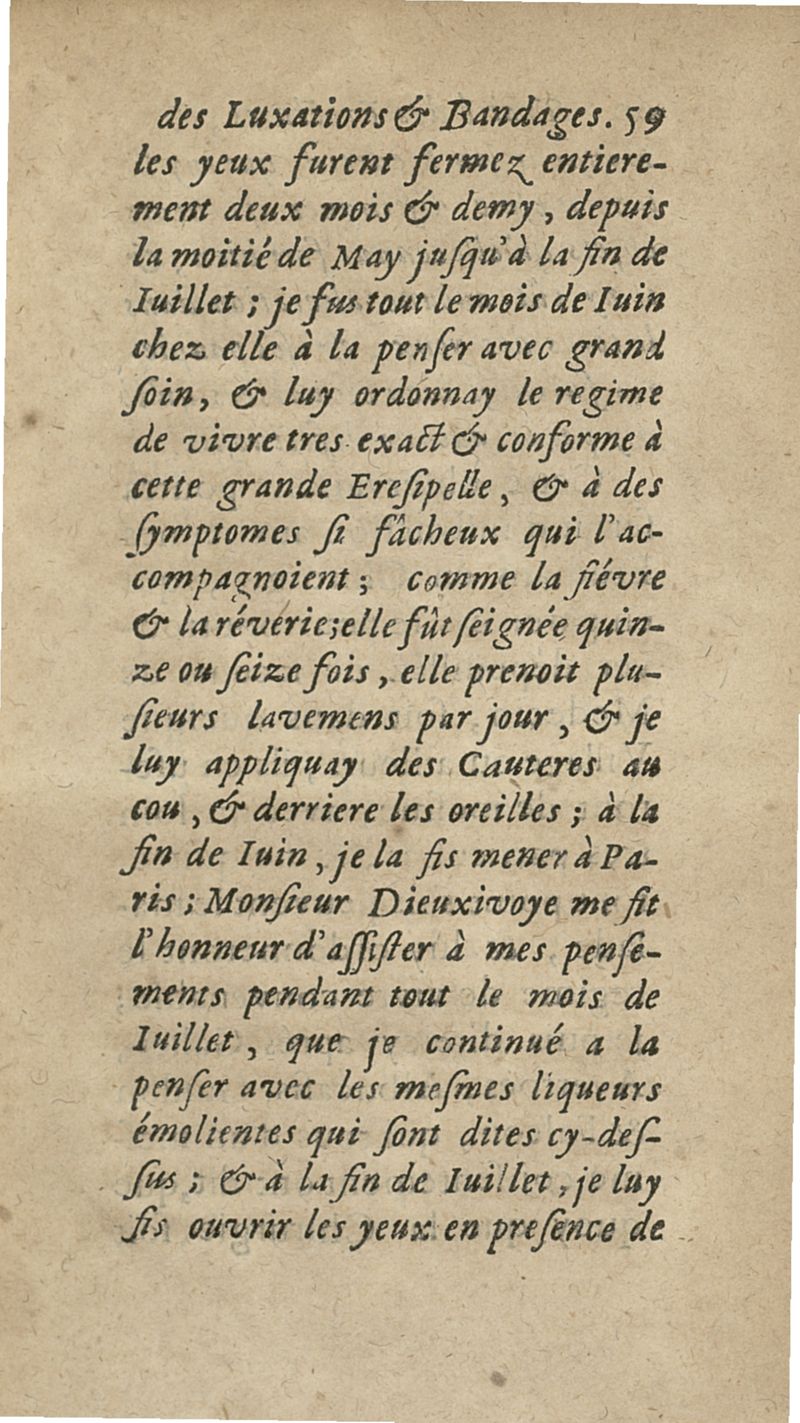 des Luxations & Bandages. 59
les yeux furent fermez entiere-
ment deux mois & demy, depuis
la moitié de May juſqu'à la fin de
Iuillet ; je fus tout le mois de Iuin
chez elle à la penſer avec grand
ſoin, & luy ordonnay le regime
de vivre tres exact & conforme à
cette grande Ereſipelle, & à des
ſymptomes ſi fâcheux qui l'ac-
compagnoient ; comme la fiévre
& la réverie; elle fût ſeignée quin-
ze ou ſeize fois, elle prenoit plu-
ſieurs lavemens par jour, & je
luy appliquay des Cauteres au
cou, & derriere les oreilles ; à la
fin de Iuin, je la fis mener à Pa-
ris ; Monſieur Dieuxivoye me fit
l'honneur d'aſſiſter à mes penſe-
ments pendant tout le mois de
Iuillet, que je continué a la
penſer avec les meſmes liqueurs
émolientes qui ſont dites cy-deſ-
ſus ; & à la fin de Iuillet, je luy
fis ouvrir les yeux en preſence de